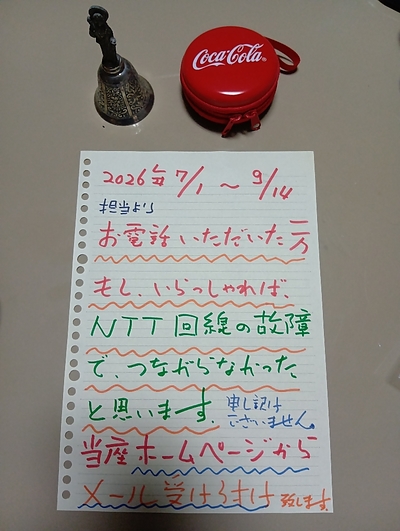 Coca-Cola
2026年 7/1 〜 9/14
担当より
お電話いただいた方
もし、いらっしゃれば、
NTT回線の故障
で、つながらなかった
と思います。
申し訳
ございません。
当座ホームページから
メール受け
致します。